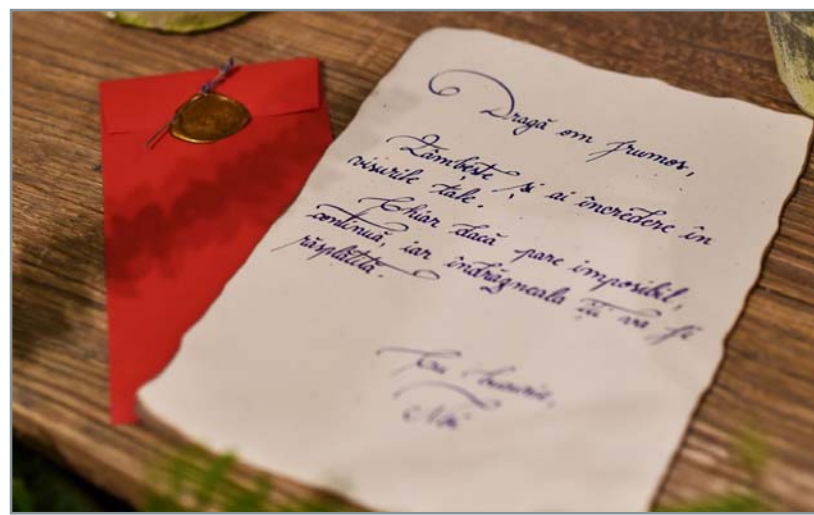 Dragă om frumos,
Zâmbește și ai încredere în
visurile tale.
Chiar dacă pare imposibil,
continuă, iar îndrăgneala îți va fi
răsplătită.
Cu bucurie,
Noi